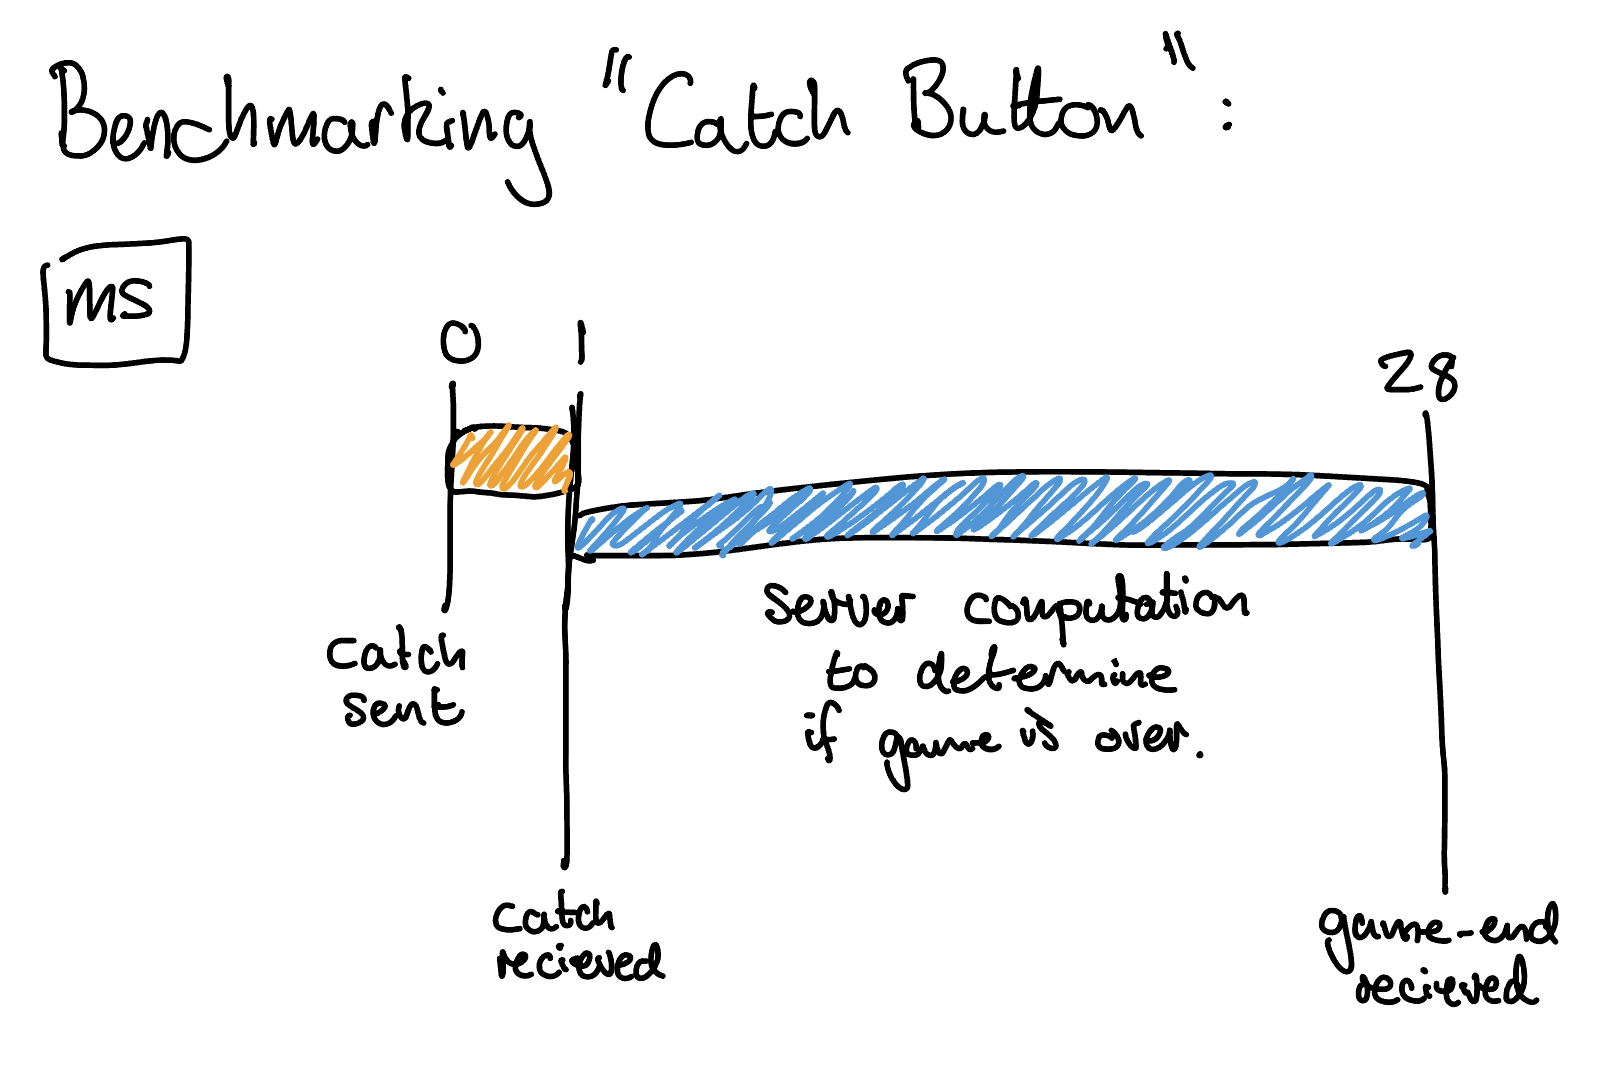 Benchmarking "Catch Button":
ms
0 1 28
Server computation
to determine
if game is over.
catch
sent
catch
recieved
game-end
recieved